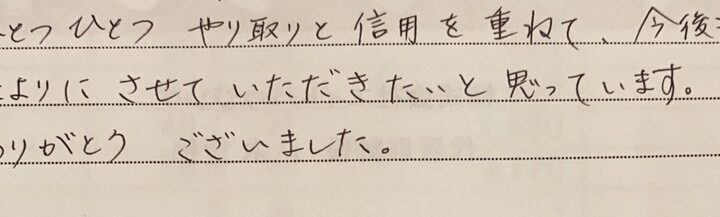 とつひとつ やり取りと信用を重ねて、今後
よりに させて いただきたいと思っています。
りがとう ございました。